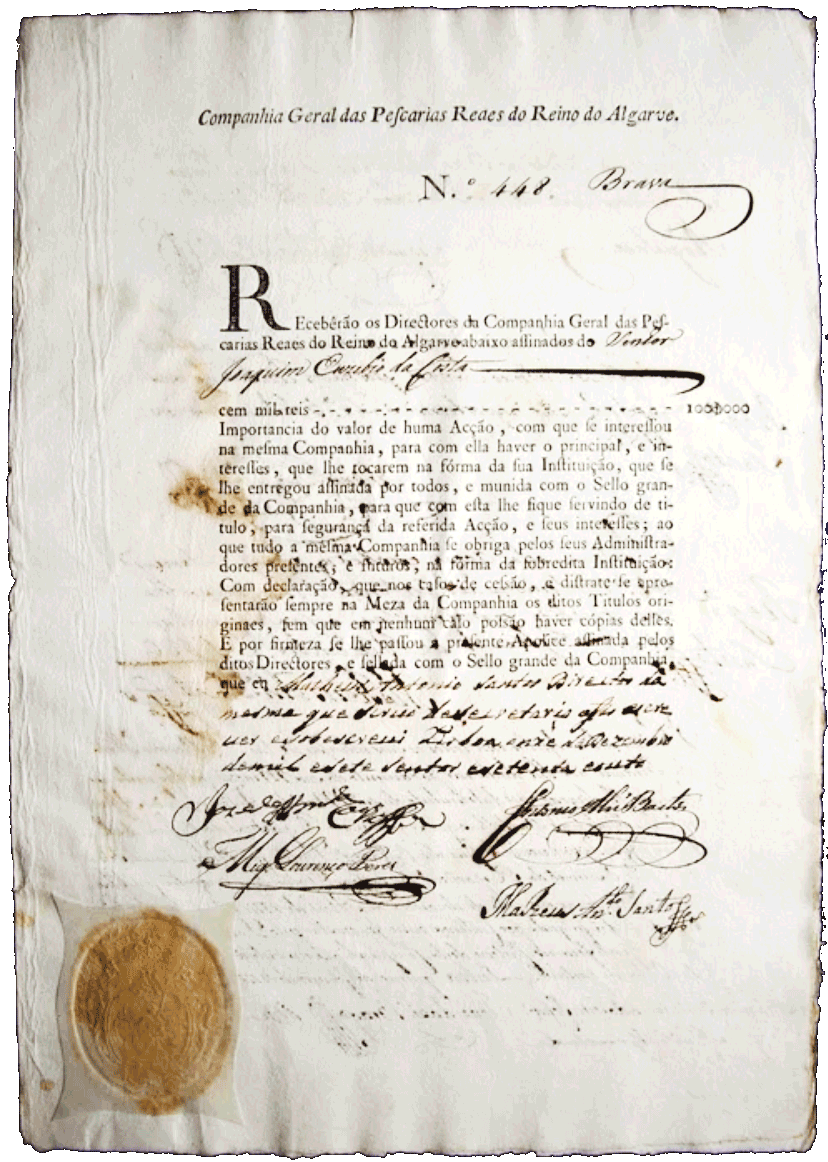 Companhia Geral das Peſcarias Reaes do Reino do Algarve.
N.º 448. Brava
REcebêrão os Directores da Companhia Geral das Peſ-
carias Reaes do Reino do Algarve abaixo aſſinados do Senhor
Joaquim Euzebio da Costa
cem mil reis - - - - - - - - - - - - - - - - - 100$000
Importancia do valor de huma Acção, com que ſe intereſſou
na meſma Companhia, para com ella haver o principal, e in-
tereſſes, que lhe tocarem na fórma da ſua Inſtituição, que ſe
lhe entregou aſſinada por todos, e munida com o Sello gran-
de da Companhia, para que com eſta lhe fique ſervindo de ti-
tulo, para ſegurança da referida Acção, e ſeus intereſſes; ao
que tudo a meſma Companhia ſe obriga pelos ſeus Adminiſtra-
dores preſentes, e futuros, na fórma da ſobredita Inſtituição:
Com declaração, que nos caſos de ceſsão, e diſtrate ſe apre-
ſentarão ſempre na Meza da Companhia os ditos Titulos ori-
ginaes, ſem que em nenhum caſo poſsão haver cópias delles.
E por firmeza ſe lhe paſſou a preſente Apolice aſſinada pelos
ditos Directores, e ſellada com o Sello grande da Companhia,
que eu Matheus Antonio Santos Director da
mesma que sirvo de secretario a fis escre
ver e sobescrevi Lisboa onze de Dezembro
de mil e sete sentos e setenta e outo
Mig.l Lourenço Peres
Matheus An.to Santos